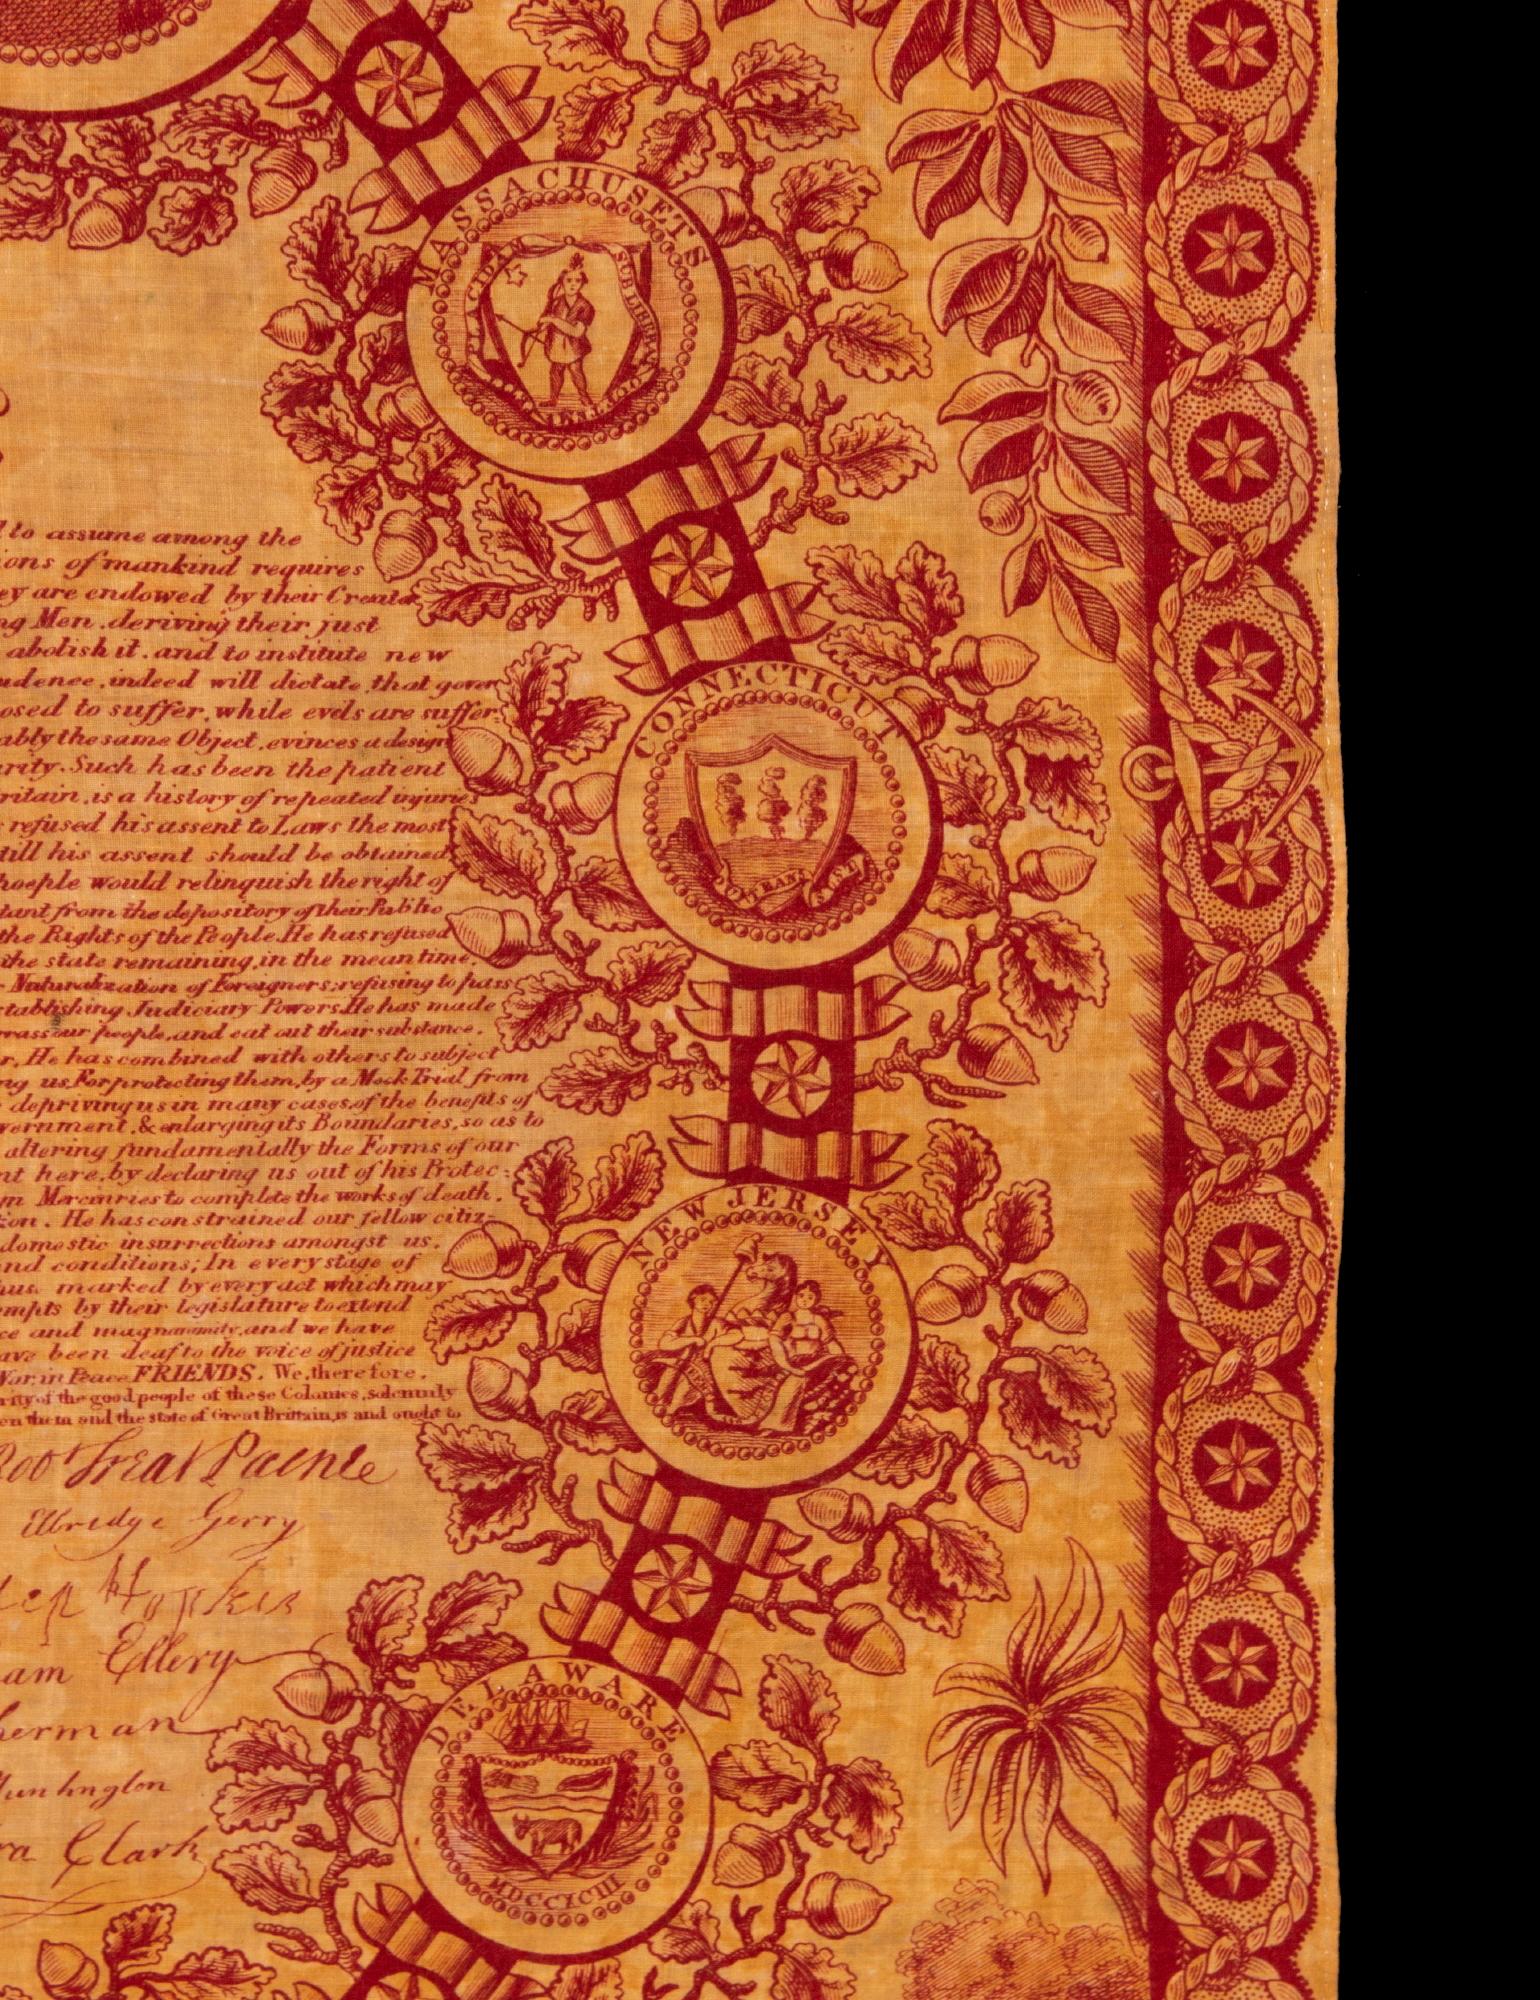 MASSACHUSETS
d to assume among the
ions of mankind requires
ey are endowed by their Creato
ng Men, deriving their just
abolish it, and to institute new
udence, indeed will dictate, that gover
osed to suffer, while evels are suffer-
ably the same Object, evinces a design
urity. Such has been the patient
ritain, is a history of repeated injuries
s refused his assent to Laws the most
till his assent should be obtained
poeple would relinquish the right of
tant from the depository of their Public
the Rights of the People. He has refused
the state remaining, in the mean time,
r Naturalization of Foreigners; refusing to pass
stablishing Judiciary Powers. He has made
rrass our people, and eat out their substance.
r, He has combined with others to subject
ng us, For protecting them, by a Mock Trial from
r depriving us in many cases, of the benefits of
vernment, & enlarging its Boundaries, so as to
altering fundamentally the Forms of our
nt here, by declaring us out of his Protec-
gn Mercinries to complete the works of death,
tion. He has constrained our fellow citiz-
domestic insurrections amongst us,
nd conditions; In every stage of
hus, marked by every act which may
empts by their legislature to extend
ce and magnanimity, and we have
ave been deaf to the voice of justice
War, in Peace FRIENDS. We, therefore,
rity of the good people of these Colonies, solemnly
en them and the state of Great Brittain, is and ought to
CONNECTICUT
NEW JERSEY
Rob Treat Paine
Elbridge Gerry
ep Hopkins
am Ellery
herman
Huntington
ra Clark
DELAWARE
MDCCXCIII